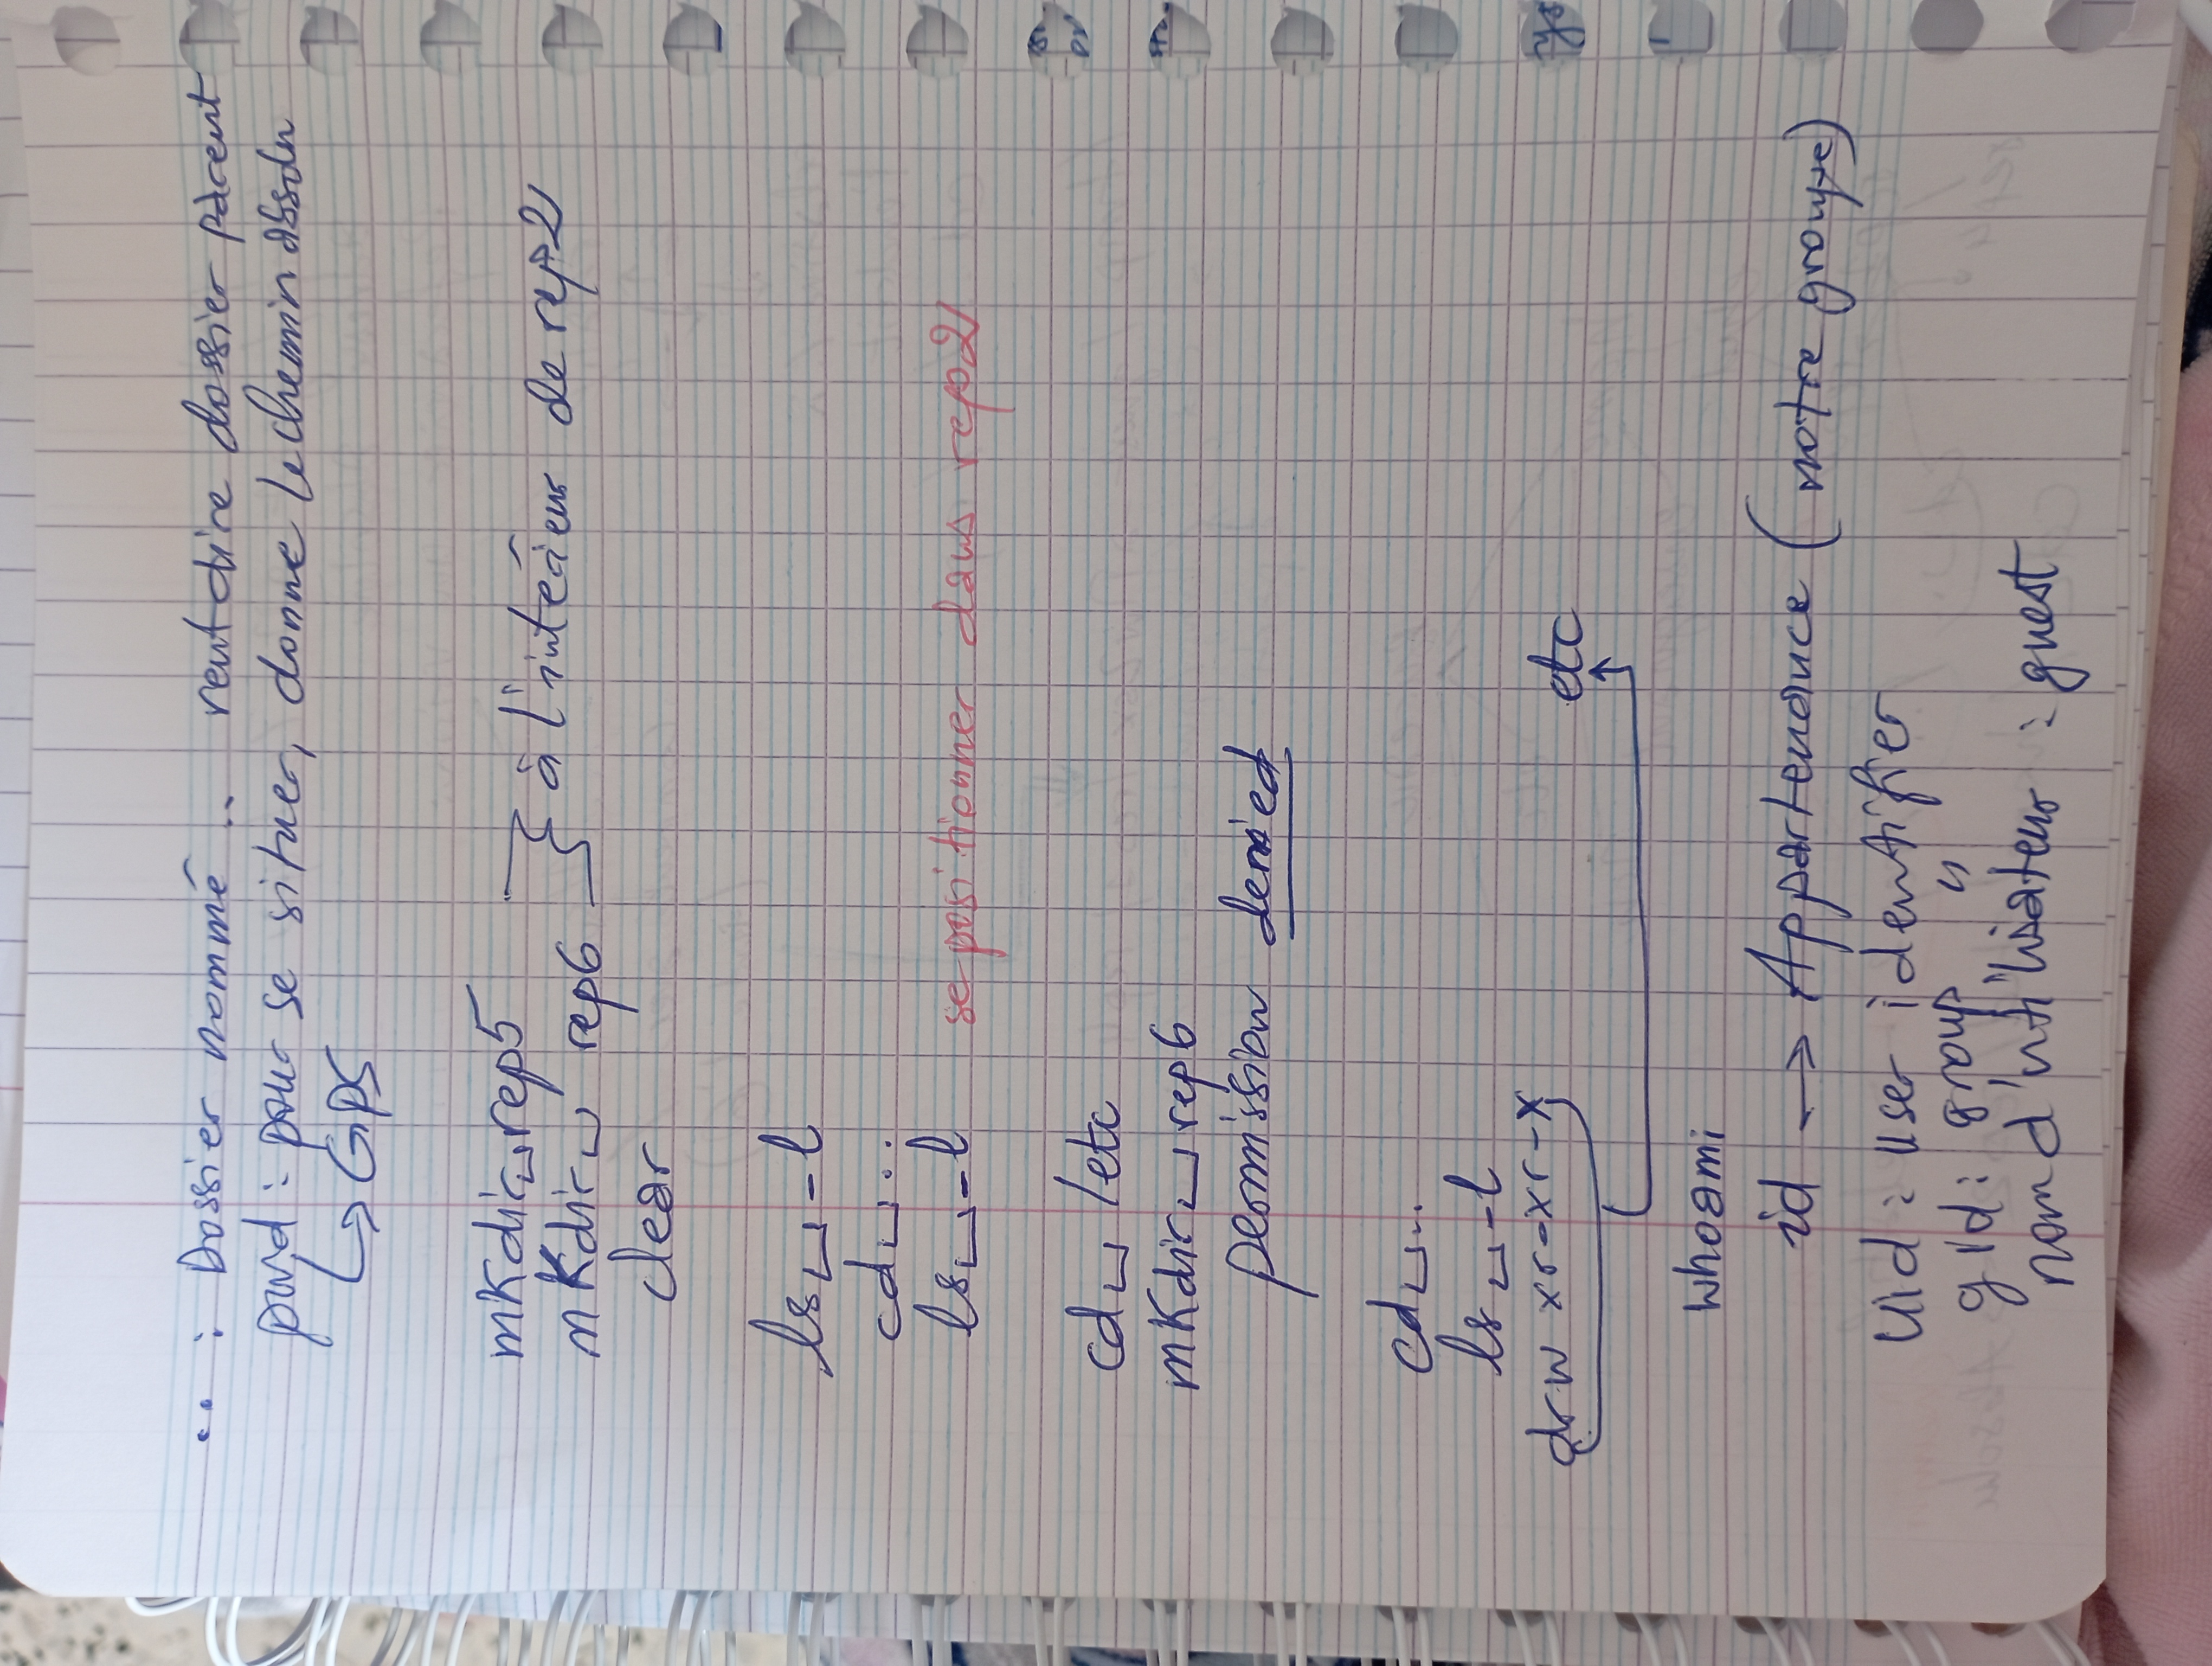 .. : Dossier nommé .. veut dire dossier parent
pwd : pour se situer, donne le chemin absolu
↳ GPS
mkdir␣rep5
mkdir␣rep6 } à l'intérieur de rep2
clear
ls␣-l
cd␣..
ls␣-l se positionner dans rep2
cd␣/etc
mkdir␣rep6
Permission denied
cd␣..
ls␣-l
drwxr-xr-x etc
whoami
id → Appartenance (notre groupe)
Uid : user identifier
gid : group "
nom d'utilisateur : guest